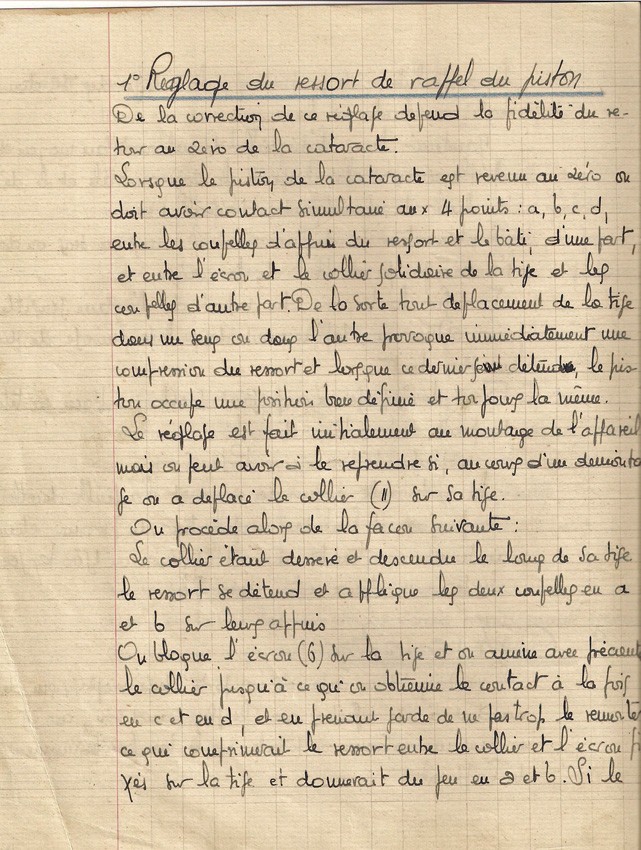 1° Réglage du ressort de rappel du piston
De la correction de ce réglage dépend la fidélité du re-
tour au zéro de la cataracte.
Lorsque le piston de la cataracte est revenu au zéro on
doit avoir contact simultané aux 4 points : a, b, c, d,
entre les coupelles d'appui du ressort et le bâti, d'une part,
et entre l'écrou et le collier solidaire de la tige et les
coupelles d'autre part. De la sorte tout déplacement de la tige
dans un sens ou dans l'autre provoque immédiatement une
compression du ressort et lorsque ce dernier détendu, le pis-
ton occupe une position bien définie et toujours la même.
Le réglage est fait initialement au montage de l'appareil
mais on peut avoir à le reprendre si, au cours d'un démonta
ge on a déplacé le collier (11) sur sa tige.
On procède alors de la façon suivante :
Le collier étant desserré et descendu le long de sa tige
le ressort se détend et applique les deux coupelles en a
et b sur leurs appuis
On bloque l'écrou (6) sur la tige et on amène avec précaut
le collier jusqu'à ce qu'on obtienne le contact à la fois
en c et en d, et en prenant garde de ne pas trop le remonter
ce qui comprimerait le ressort entre le collier et l'écrou fi
xés sur la tige et donnerait du jeu en a et b. Si le